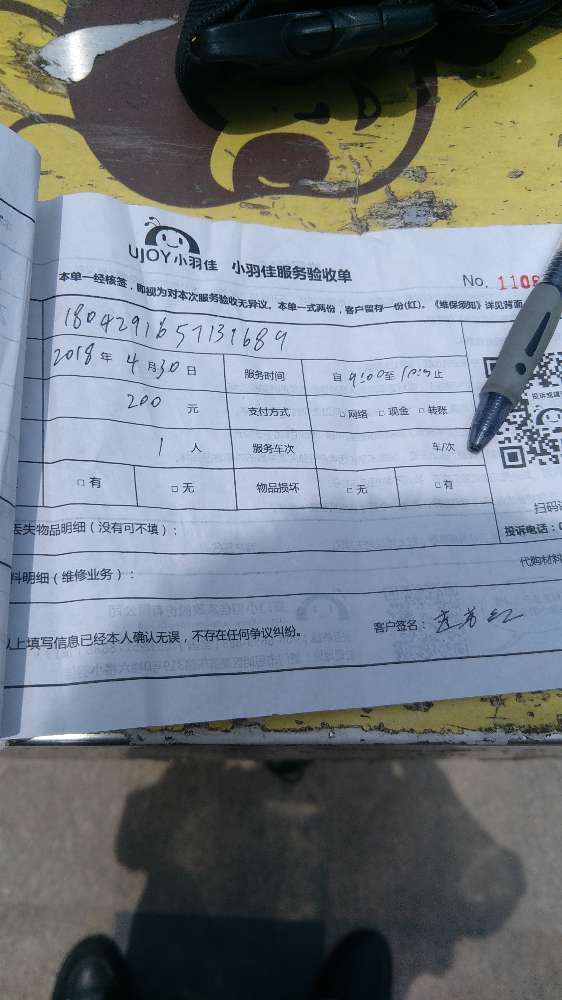 UJOY小羽佳 小羽佳服务验收单
No. 1106
本单一经核签，即视为对本次服务验收无异议。本单一式两份，客户留存一份(红)。《维保须知》详见背面
1804291657131689
2018 年 4 月 30 日 服务时间 自 9:00 至 止
200 元 支付方式 □ 网络 □ 现金 □ 转账
1 人 服务车次 车/次
□ 有 □ 无 物品损坏 □ 无 □ 有
扫码
丢失物品明细（没有可不填）：
投诉电话：0
料明细（维修业务）：
代购材料
以上填写信息已经本人确认无误，不存在任何争议纠纷。 客户签名：